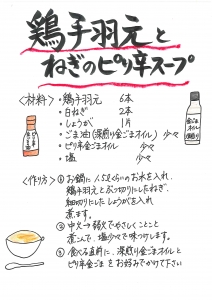 鶏手羽元と
ねぎのピリ辛スープ
〈材料〉
・鶏手羽元 6本
・白ねぎ 2本
・しょうが 1片
・ごま油(深煎り金ごまオイル) 少々
・ピリ辛金ごまオイル 少々
・塩 少々
〈作り方〉
① お鍋に人数ぐらいのお水を入れ、
鶏手羽元とぶつ切りにしたねぎ、
細切りにしたしょうがを入れ
煮ます。
② 中火→弱火でやさしくことこと
煮こんで、塩少々で味つけします。
③ 食べる直前に、深煎り金ごまオイルと
ピリ辛金ごまをお好みでかけて下さい
金ごまオイル